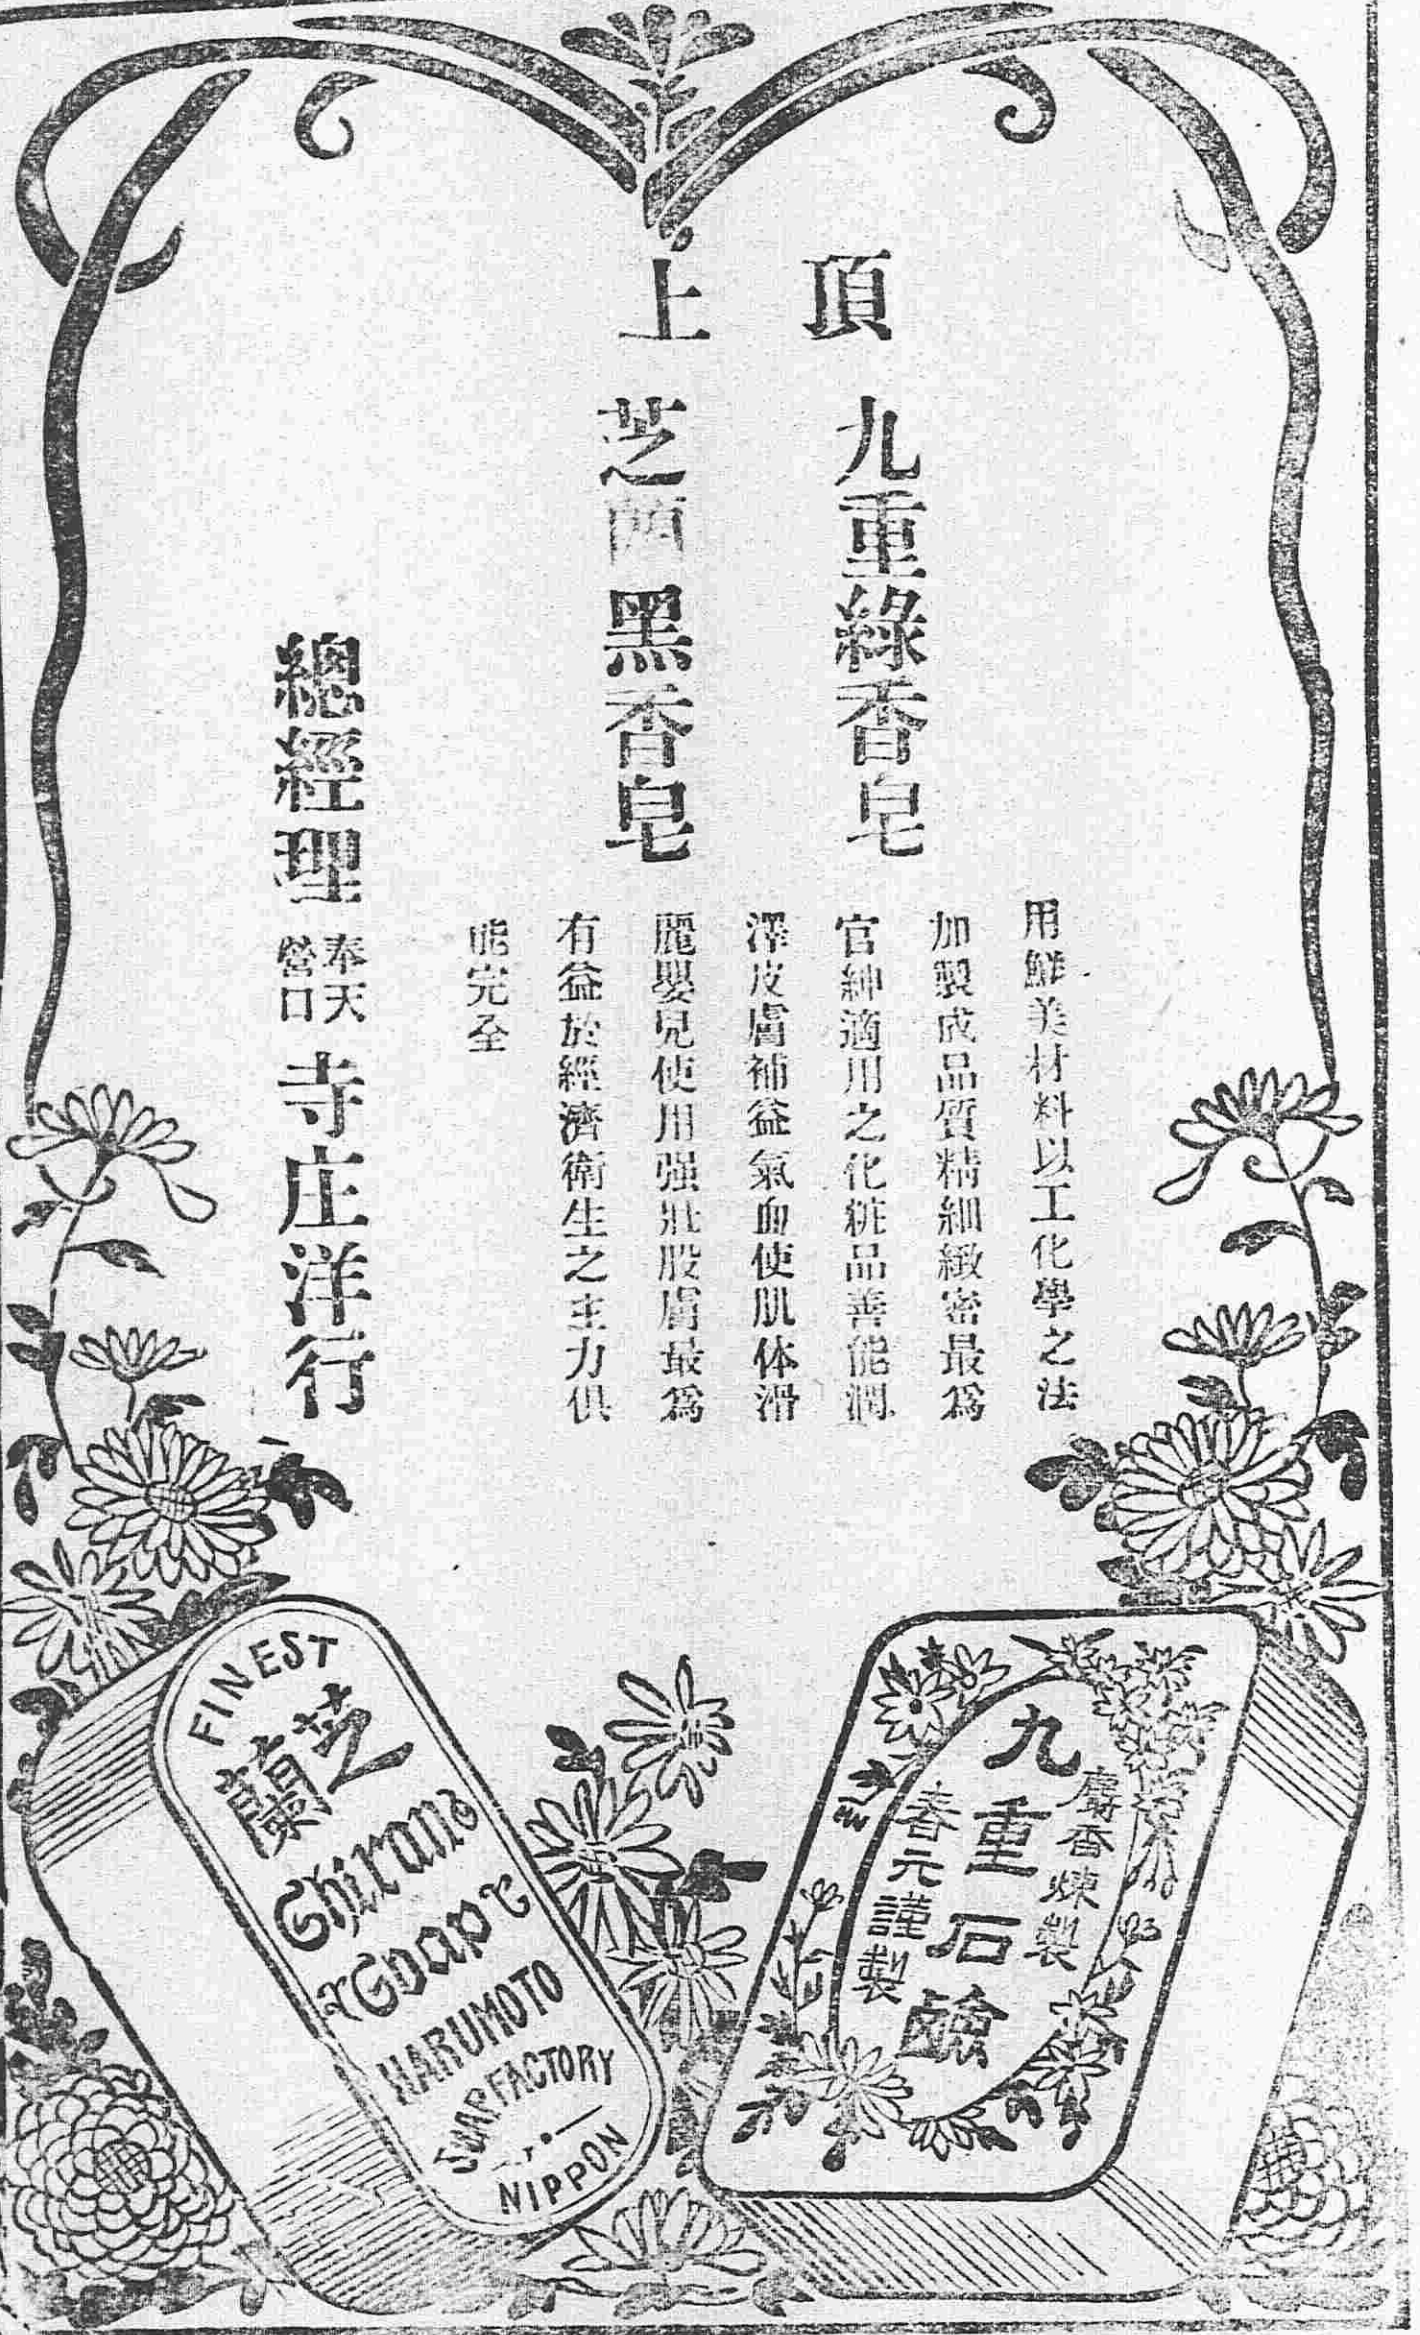 頂上
九重綠香皂
芝蘭黑香皂
用鮮美材料以工化學之法
加製成品質精細緻密最爲
官紳適用之化粧品善能潤
澤皮膚補益氣血使肌体滑
麗嬰兒使用强壯股膚最爲
有益於經濟衛生之主力俱
能完全
總經理
奉天
營口
寺庄洋行
FINEST
芝蘭
Chirand
Soap
HARUMOTO
SOAP FACTORY
NIPPON
麝香煉製
九重石鹼
春元謹製